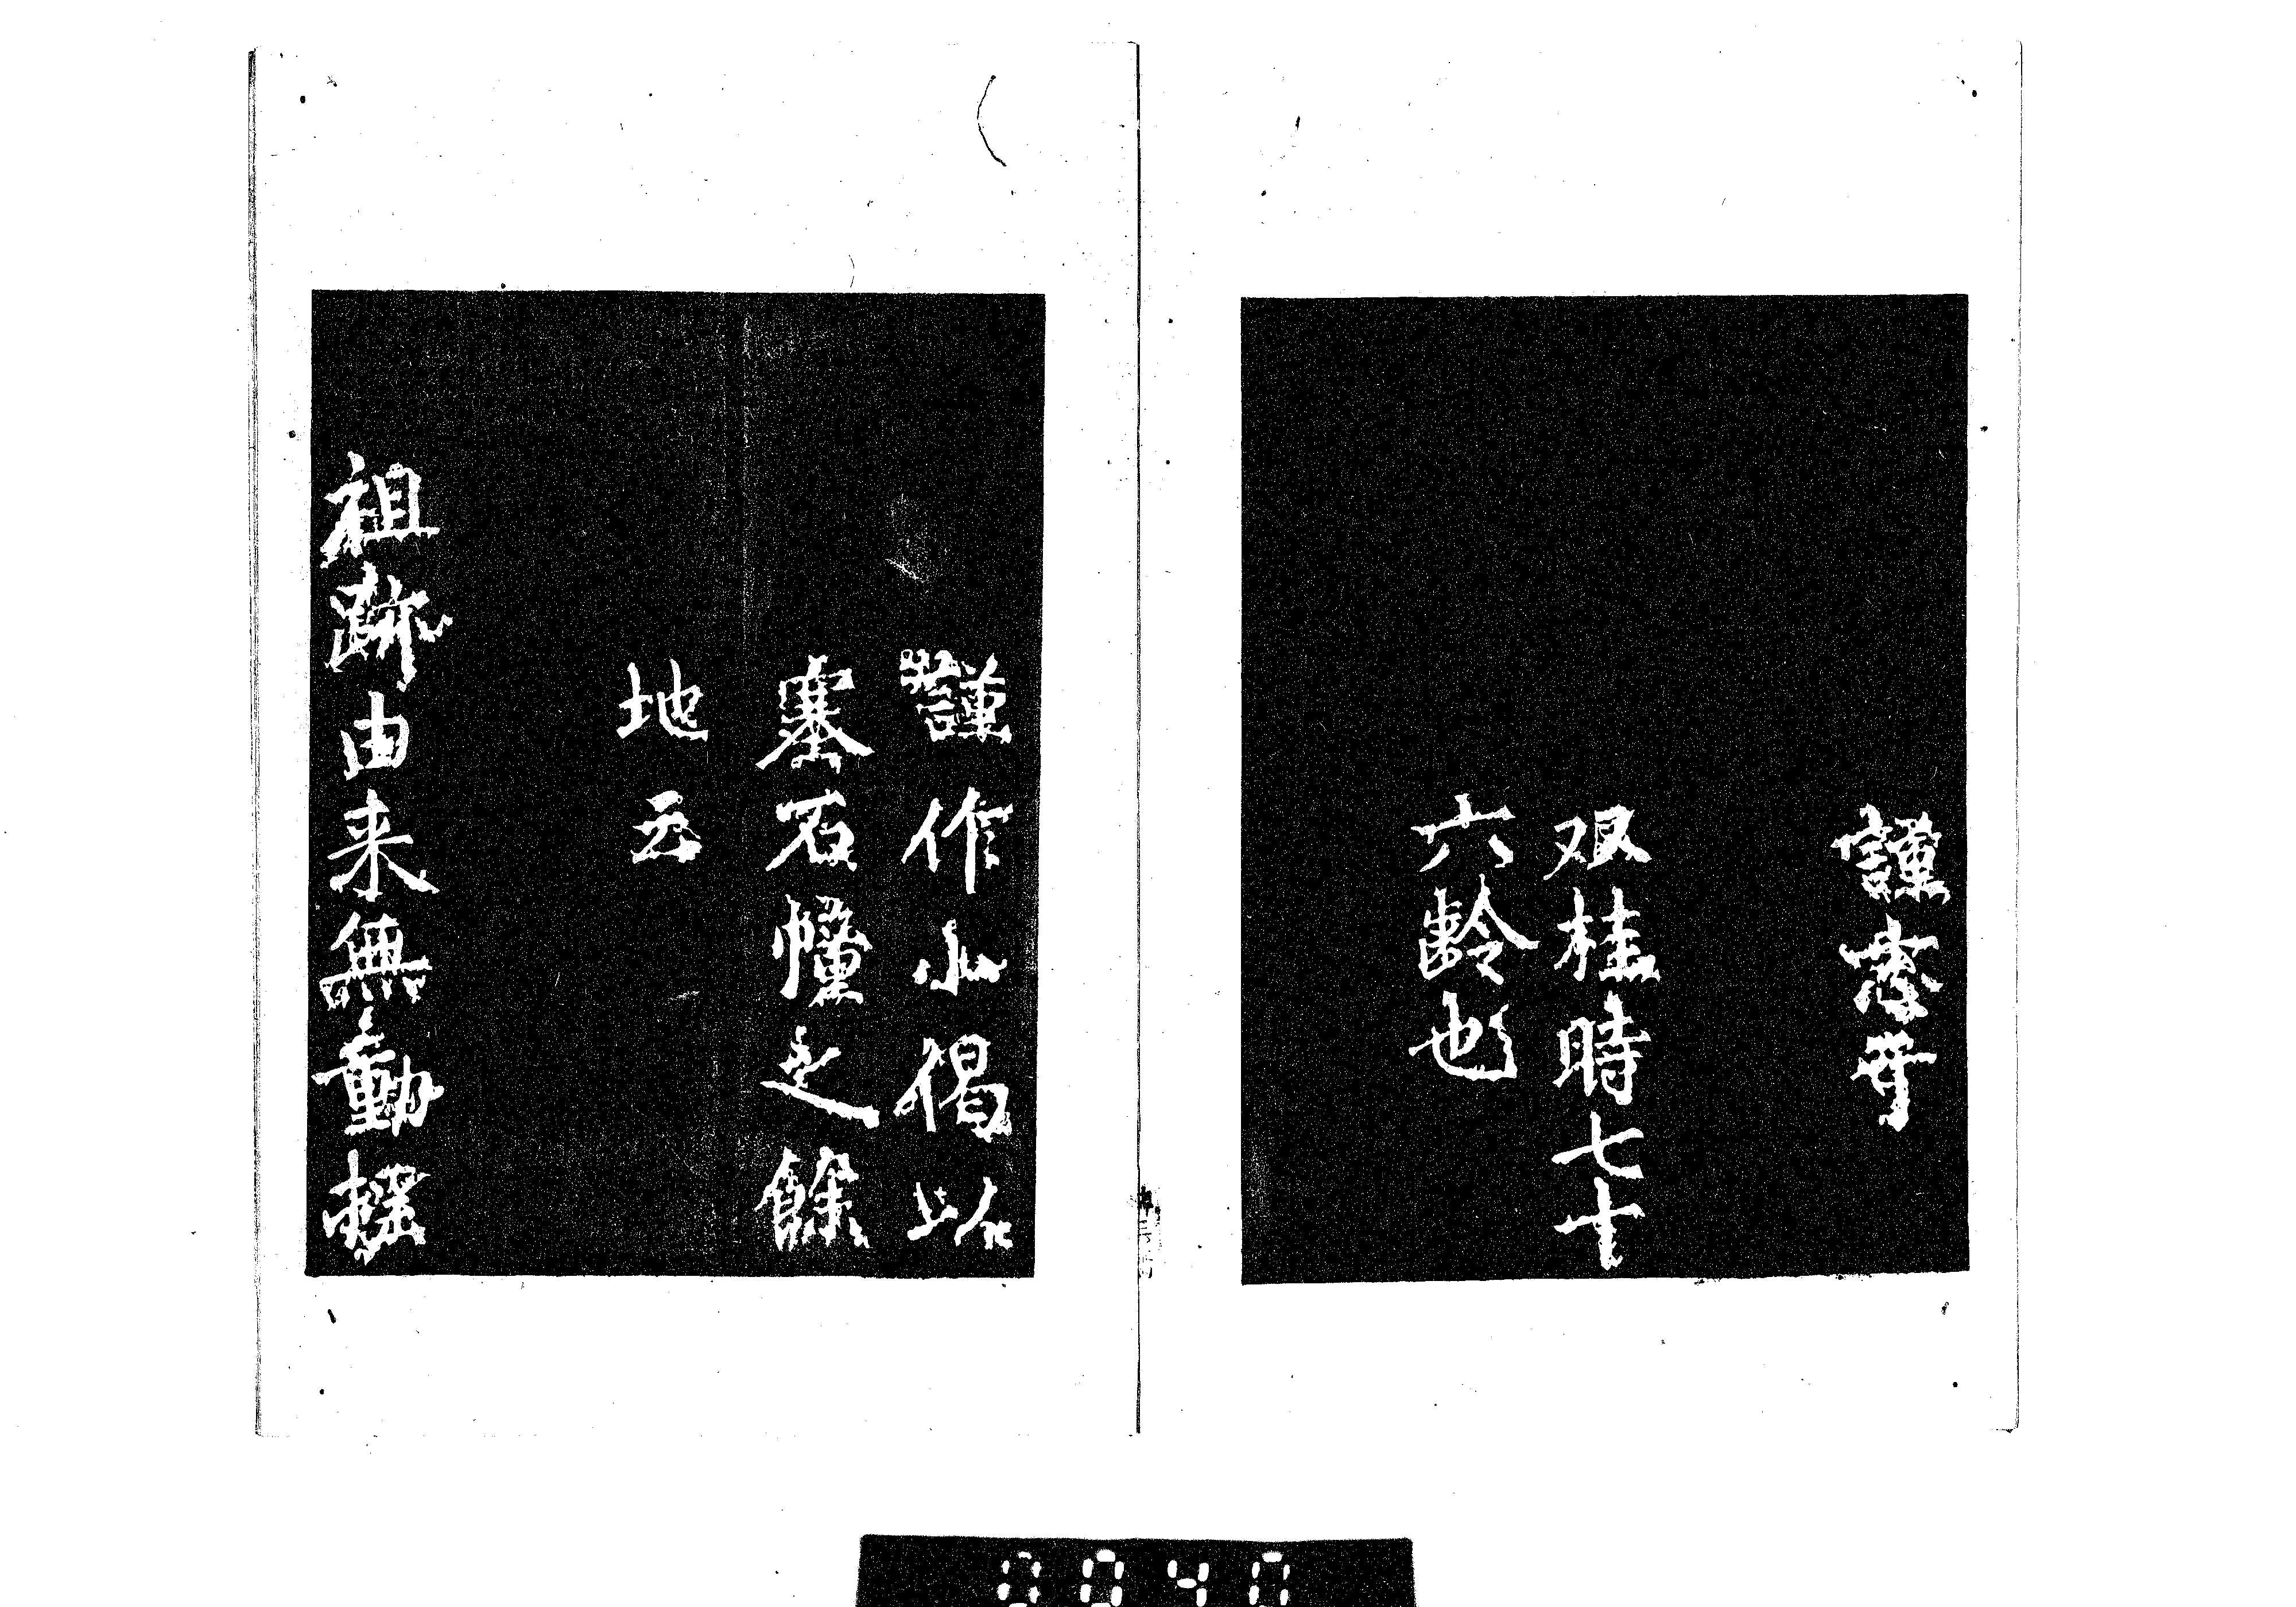 謹書
双桂時七十
六齡也
謹作小偈以
塞石幢之餘
地云
祖跡由来無動揺
0040